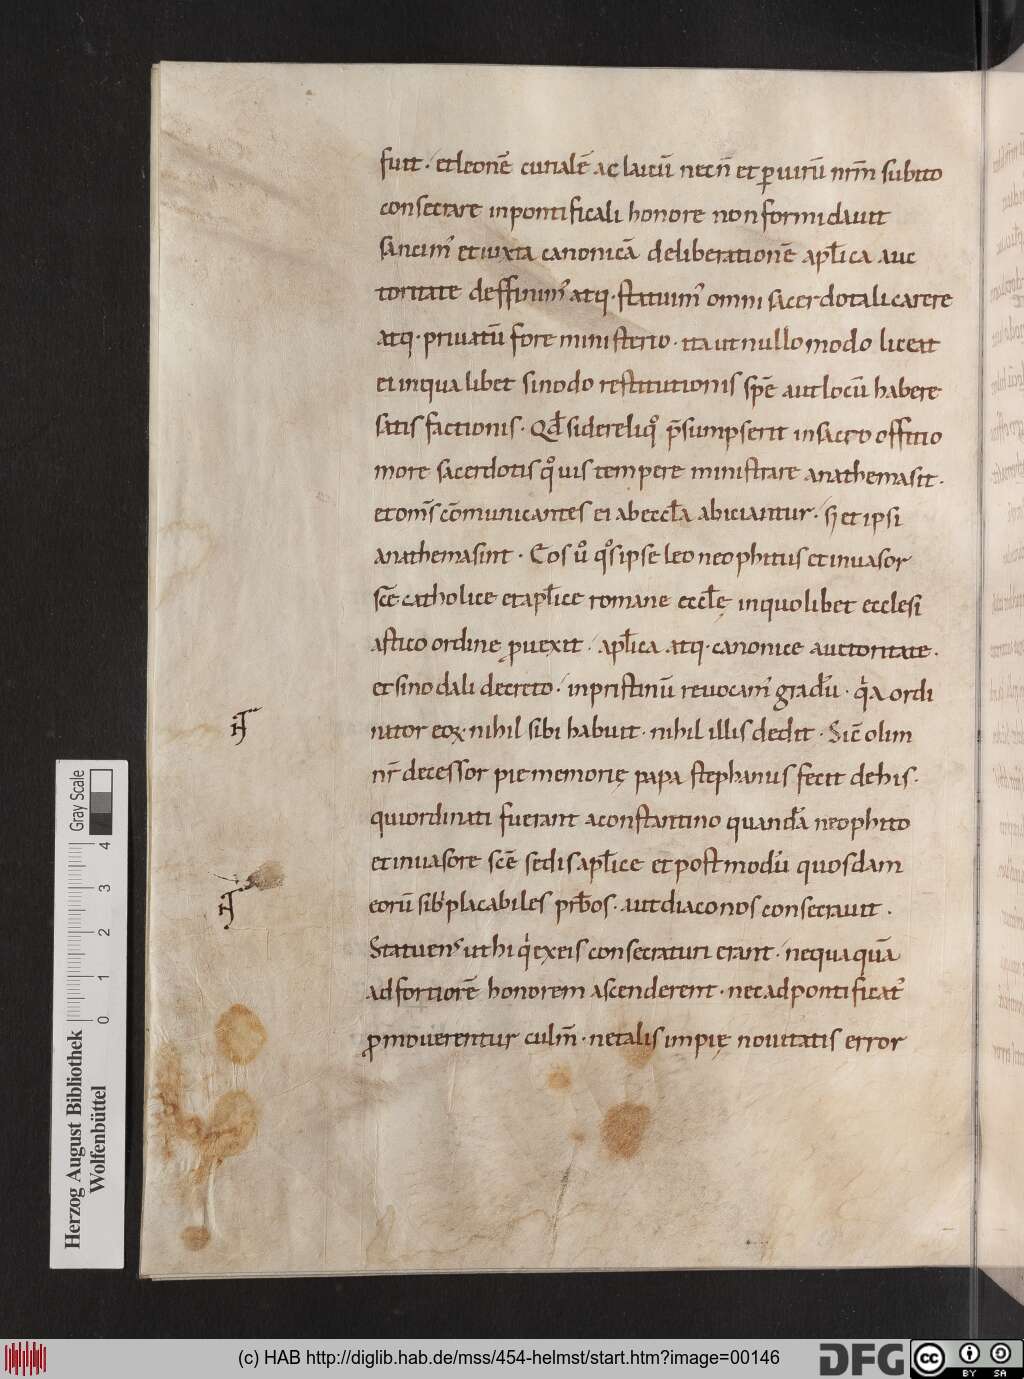 fuit · et leonē curialē ac laicū necñ et ꝑuirū nr̄m subito
consecrare in pontificali honore non formidauit
sancim᾽ et iuxta canonicā deliberationē apl̄ica auc
toritate deffinim᾽ atq· statuim᾽ omni sacerdotali carere
atq· priuatū fore ministerio · ita ut nullo modo liceat
ei in qua libet sinodo restitutionis spē aut locū habere
satis factionis · Qđ si dereliq° p̄sumpserit in sacro offitio
more sacerdotis q°uis tempere ministrare anathema sit ·
et om̄s cōmunicantes ei ab eccl̄a abiciantur · s; et ipsi
anathema sint · Eos u° q°s ipse leo neophitus et inuasor
scē catholice et apl̄ice romane eccl̄ę in quolibet ecclesi
astico ordine ꝓuexit · apl̄ica atq· canonice auctoritate ·
et sino dali decreto · in pristinū reuocam᾽ gradū · q̇a ordi
nator eoꝝ nihil sibi habuit · nihil illis dedit · Sic̄ olim
nr̄ decessor pie memorię papa stephanus fecit de his ·
qui ordinati fuerant a constantino quandā neophito
et inuasore scē sedis apl̄ice et postmodū quosdam
eorū sibi placabiles prb̄os · aut diaconos consecrauit ·
Statuens ut hi q̇ ex eis consecraturi erant · nequaquā
ad fortiorē honorem ascenderent · nec ad pontificat᾽
ꝓmouerentur culm̄ · ne talis impię nouitatis error
Gray Scale
4
3
2
1
0
Herzog August Bibliothek
Wolfenbüttel
(c) HAB http://diglib.hab.de/mss/454-helmst/start.htm?image=00146
DFG
cc
BY SA